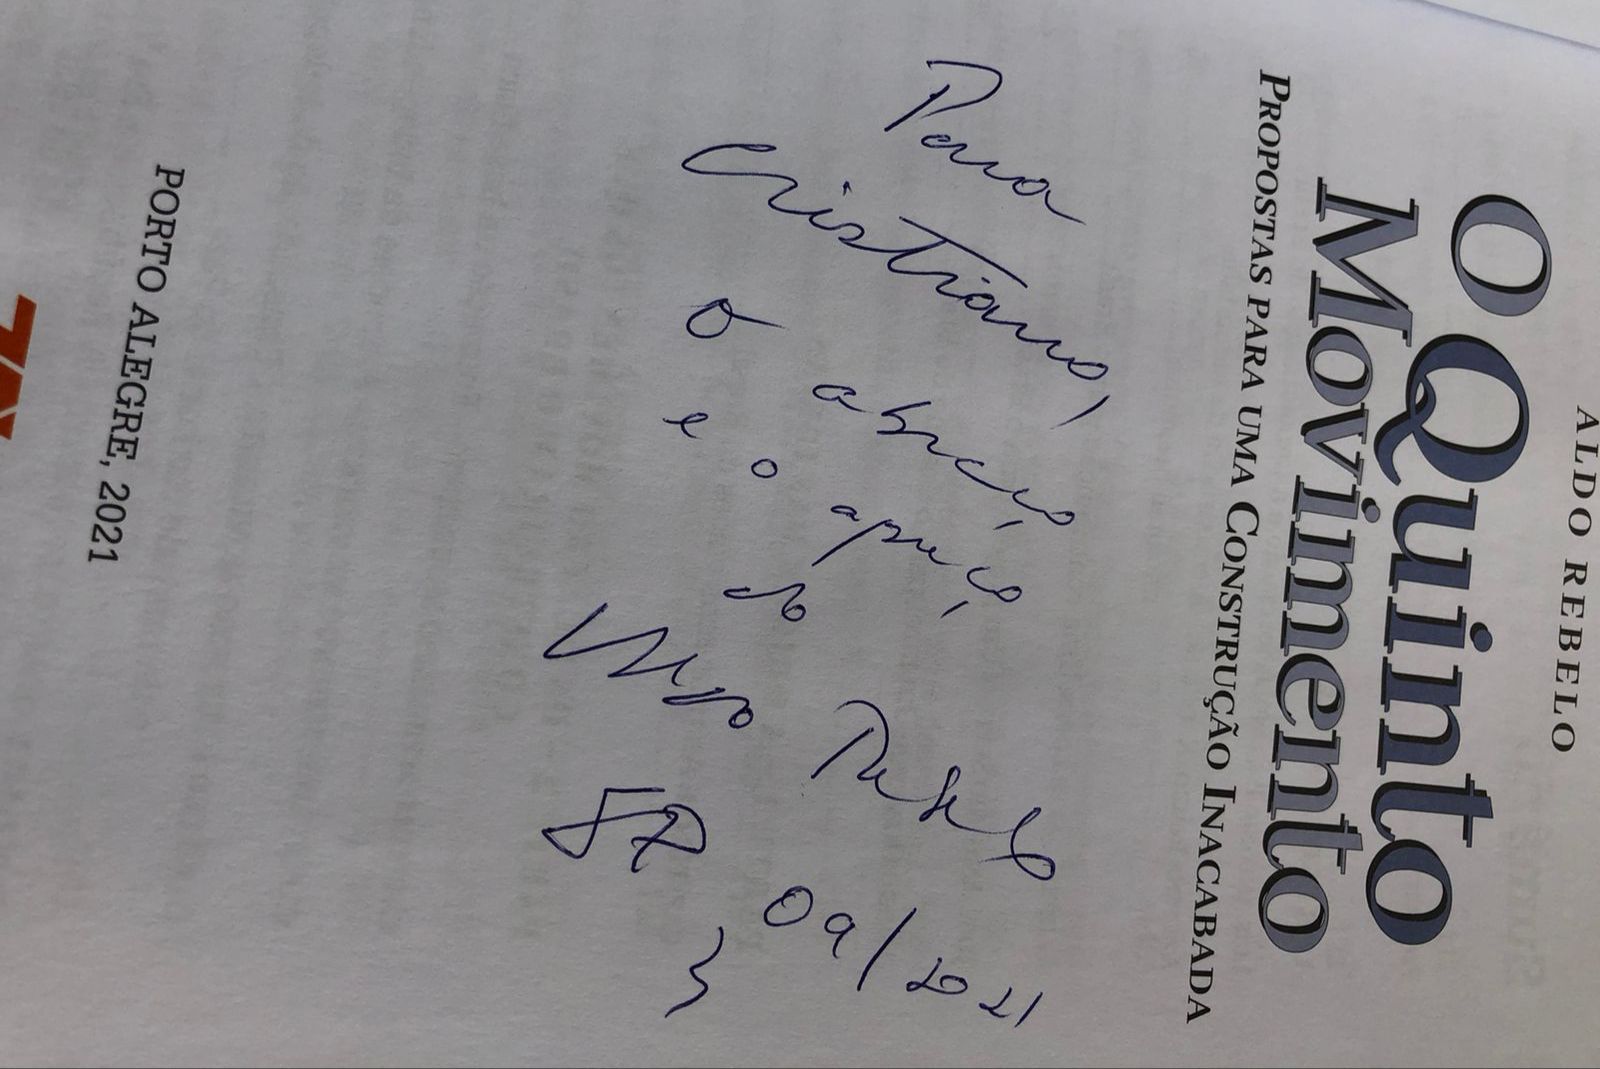 ALDO REBELO
O Quinto
Movimento
PROPOSTAS PARA UMA CONSTRUÇÃO INACABADA
Para
Cristiano,
o abraço
e o apreço
do
Aldo Rebelo
SP
09/2021
PORTO ALEGRE, 2021